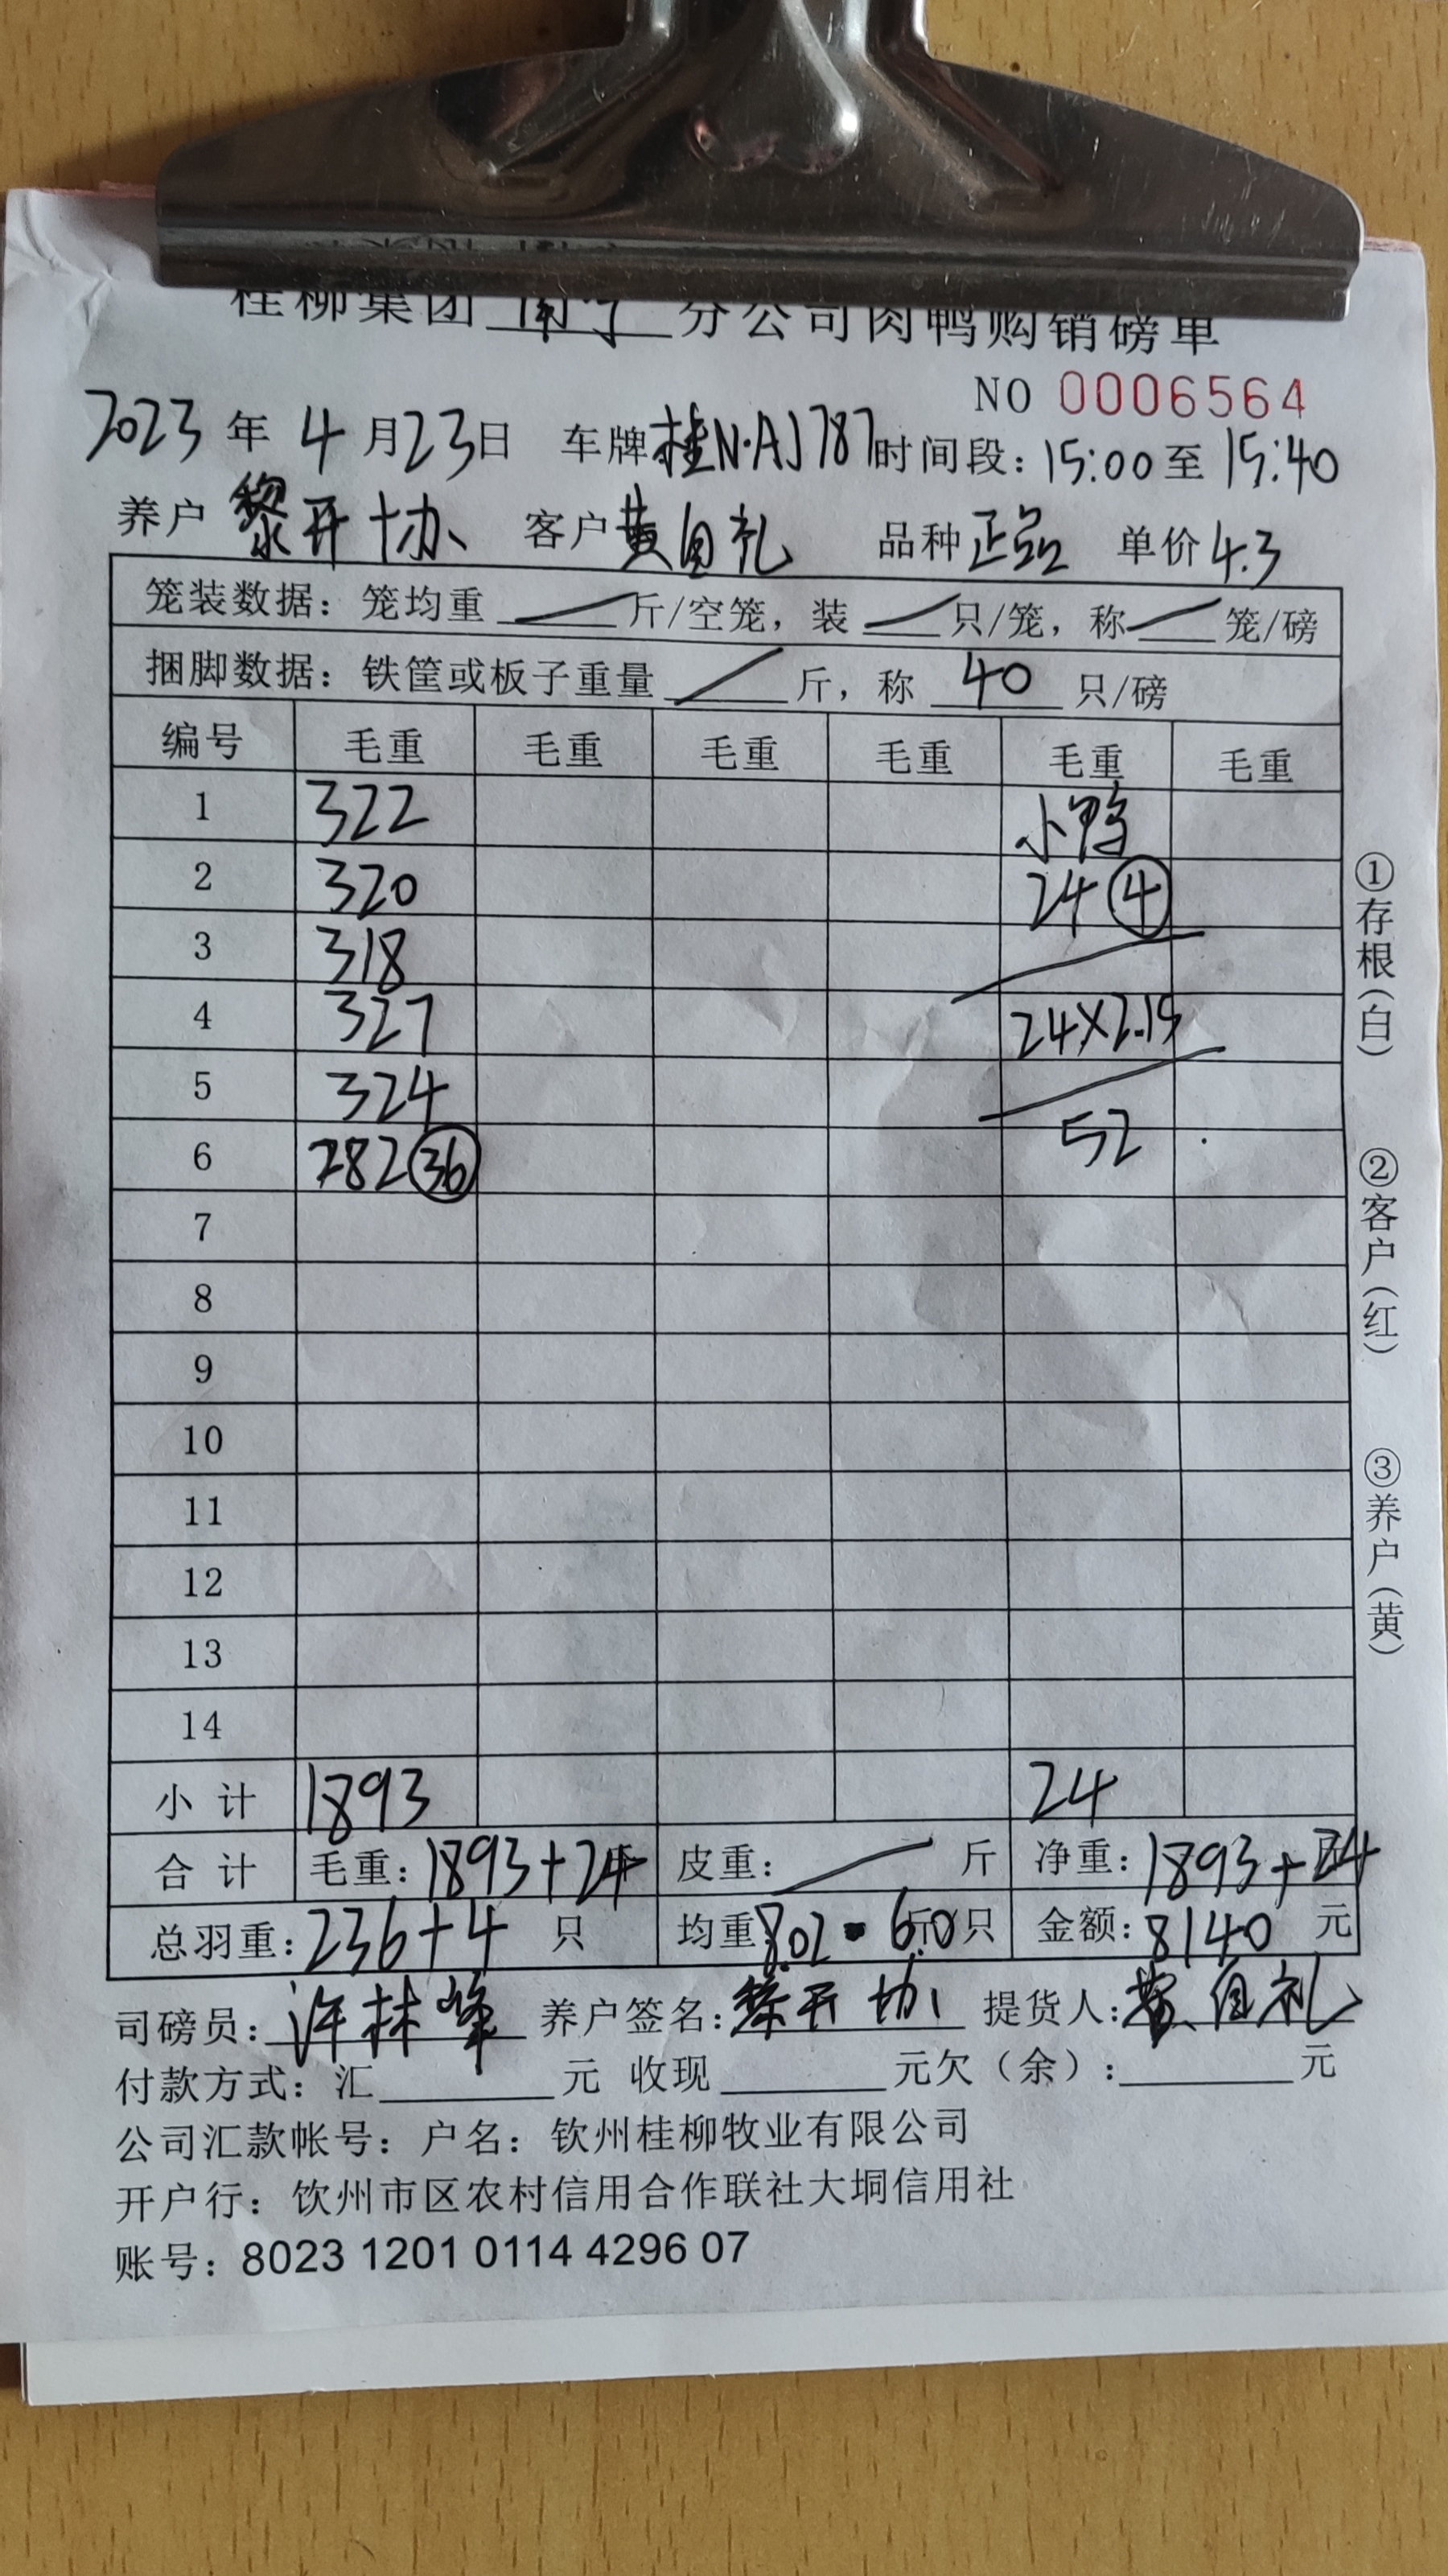 桂柳集团 南宁 分公司肉鸭购销磅单
NO 0006564
2023 年 4 月 23 日 车牌 桂N·AJ787 时间段: 15:00 至 15:40
养户 黎开协 客户 黄自礼 品种 正品 单价 4.3
笼装数据: 笼均重 斤/空笼, 装 只/笼, 称 笼/磅
捆脚数据: 铁筐或板子重量 斤, 称 40 只/磅
编号 毛重 毛重 毛重 毛重 毛重 毛重
1 322 小鸭
2 320 24 ④
3 318
4 327 24×2.15
5 324
6 282 ㊱ 52
7
8
9
10
11
12
13
14
小计 1893 24
合计 毛重: 1893+24 皮重: 斤 净重: 1893+24
总羽重: 236+4 只 均重 8.02 6.0 斤/只 金额: 8140 元
司磅员: 许林峰 养户签名: 黎开协 提货人: 黄自礼
付款方式: 汇 元 收现 元欠(余): 元
公司汇款帐号: 户名: 钦州桂柳牧业有限公司
开户行: 钦州市区农村信用合作联社大垌信用社
账号: 8023 1201 0114 4296 07
①存根(白)
②客户(红)
③养户(黄)